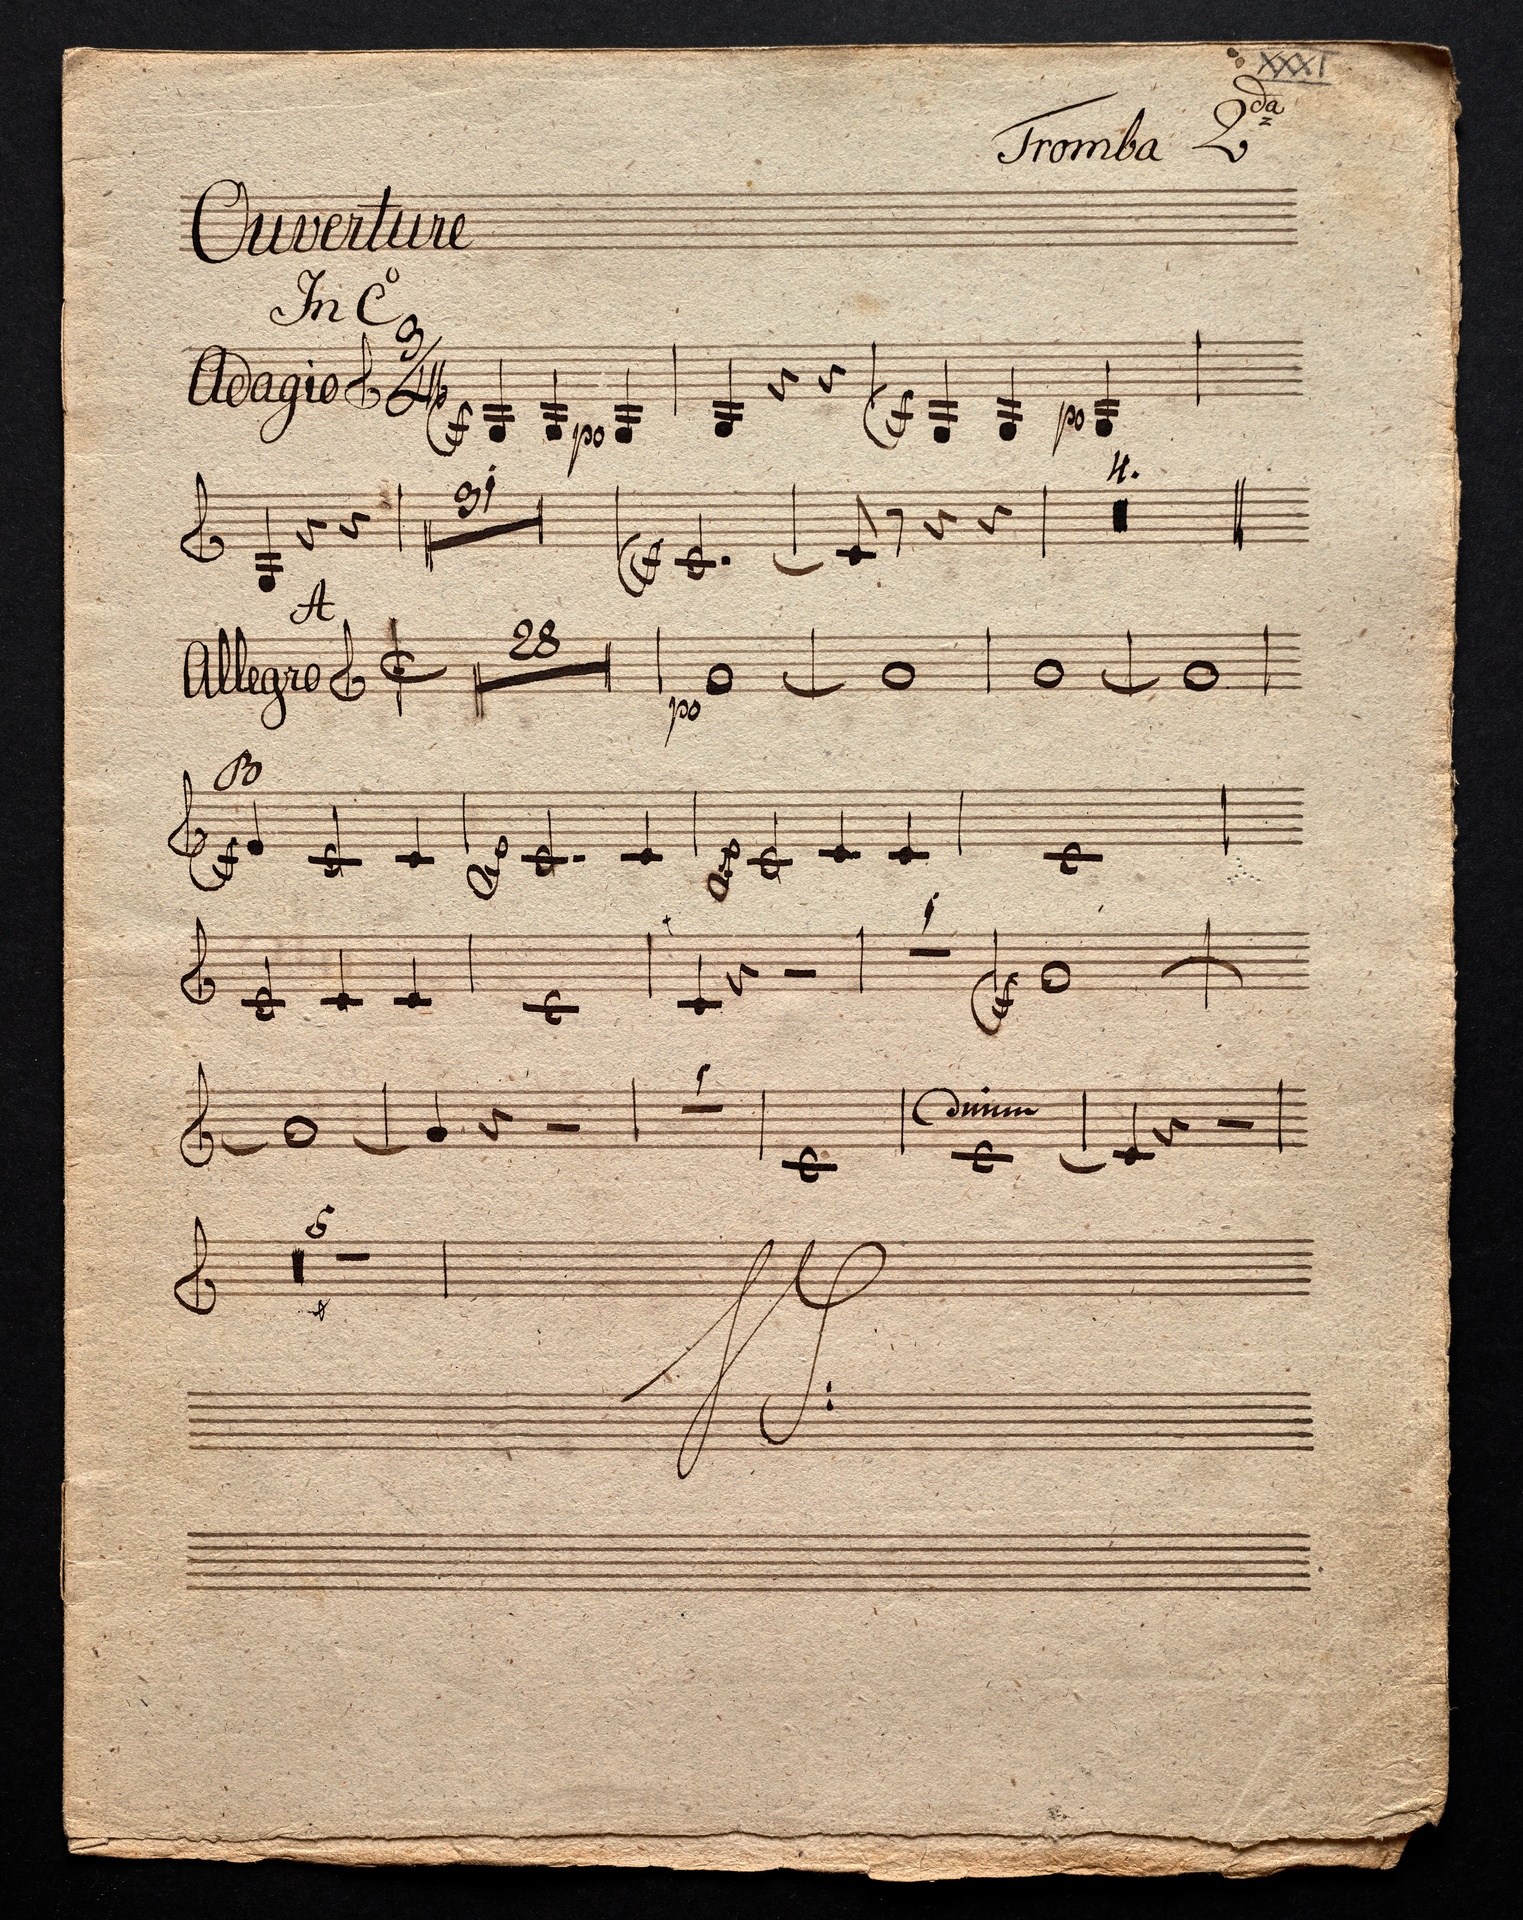 XXXI
Tromba 2da
Ouverture
In C°
Adagio 3/4 f po f po
31 f 4.
A
Allegro 28 po
B
f
1 f
1 dimin
5
VS: